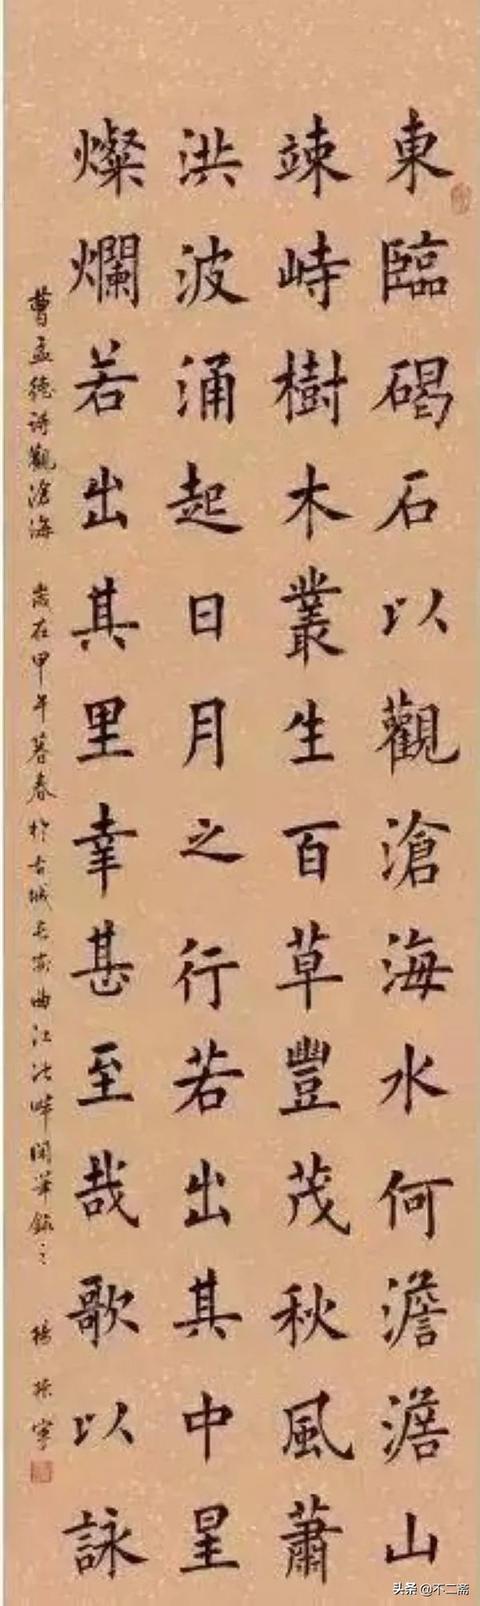 東臨碣石以觀滄海水何澹澹山
竦峙樹木叢生百草豐茂秋風蕭
洪波涌起日月之行若出其中星
燦爛若出其里幸甚至哉歌以詠
曹孟德詩觀滄海 歲在甲午暮春於古城長安曲江池畔閑筆錄之 楊
头条 @不二斋